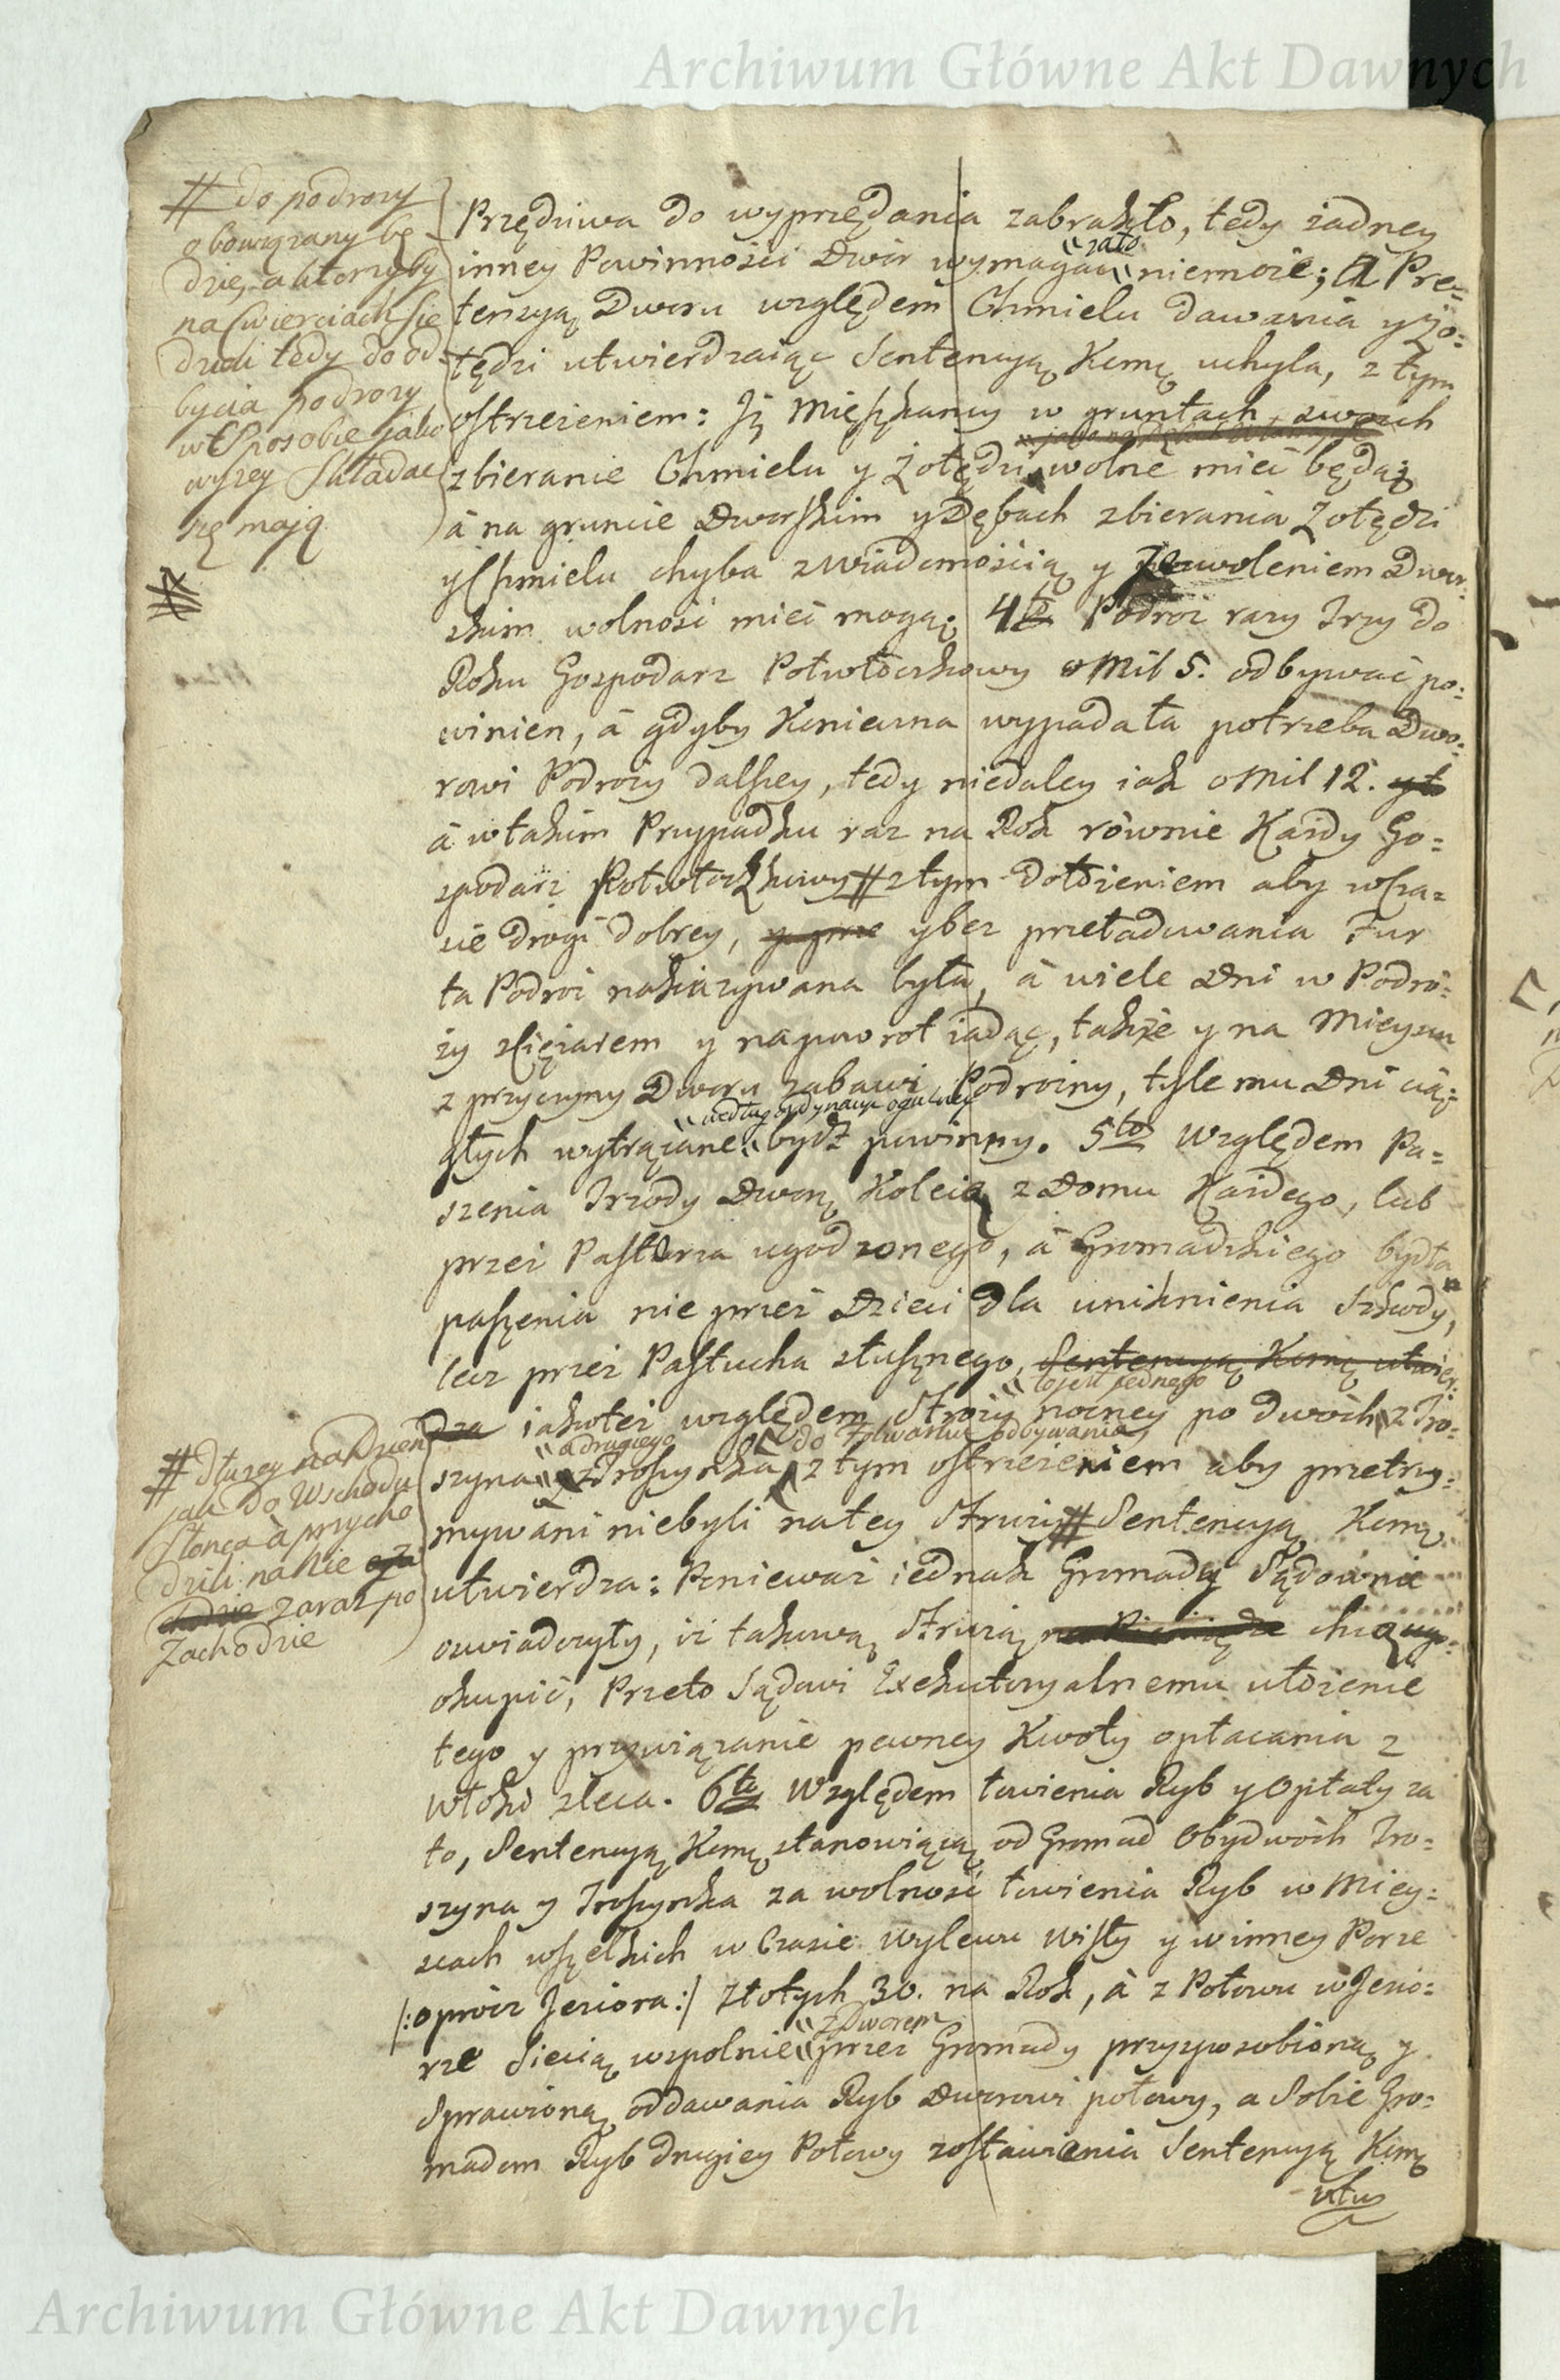 Archiwum Główne Akt Dawnych
# do podrozy
obowiązany bę
dzie, a ktorzyby
na Cwierciach sie
dzieli tedy do od=
bycia podrozy
w Sposobie jako
wyzey Składac
się mają
Przędziwa do wyprzędania zabrakło, tedy żadney
"zato"
inney Powinności Dwór wymagać niemoże; A Pre=
tensyą Dworu względem Chmielu dawania y Żo=
łędzi utwierdzaiąc Sentencyą Kmę uchyla, z tym
ostrzeżeniem: Iż Mieszkancy w gruntach swoich
zbieranie Chmielu y Żołędzi wolne mieć będą;
à na gruncie Dworskim y Dębach zbierania Żołędzi
y Chmielu chyba z wiadomością y Zezwoleniem Dwor=
skim wolność mieć mogą; 4to Podroż razy Trzy do
Roku Gospodarz Połwłoczkowy o Mil 5. odbywać po=
winien, à gdyby Konieczna wypadała potrzeba Dwo=
rowi Podroży dalszey, tedy niedaley iak o Mil 12.
à w takim Przypadku raz na Rok równie Każdy Go=
spodarz Połwłoczkowy # z tym dołożeniem aby w Cza=
sie drogi dobrey, y bez przeładowania Fur
ta Podroż nakazywana była, à wiele Dni w Podro=
ży z Ciężarem y napowrot iadąc, także y na Mieyscu
z przyczyny Dworu zabawi Podrożny, tyle mu Dni cią=
"według ordynacyi ogulney
głych wytrącane bydź powinny. 5to Względem Pa=
szenia Trzody Dworż Koleią z Domu Każdego, lub
przez Pasterza ugodzonego, à Gromadzkiego bydła
paszenia nie przez Dzieci dla uniknienia Szkody,
lecz przez Pastucha słusznego, Sentencyą Kmę utwier=
"to jest jednego
dza iakoteż względem Stroży nocney po dwóch z Tro=
"a drugiego do Folwarku odbywania
szyna y z Troszynka z tym ostrzeżeniem aby przetrzy=
mywani niebyli na tey Stroży # Sentencyą Kmę
# dłuzey na Dzien
jak do Wschodu
Słonca à przycho
dzili na Nie
zaraz po
Zachodzie
utwierdza: Ponieważ iednak Gromady Sądownie
oświadczyły, iż takową Strożą chcą
okupić, Przeto Sądowi Exekutoryalnemu ułożenie
tego y przywiązanie pewney Kwoty opłacania z
Włoki zleca. 6to Względem łowienia Ryb y Opłaty za
to, Sentencyą Kmę stanowiącą od Gromad Obydwóch Tro=
szyna y Troszynka za wolność łowienia Ryb w Miey=
scach wszelkich w Czasie wylewu Wisły y w inney Porze
/:oprócz Jeziora:/ Złotych 30. na Rok, à z Połowu w Jezio=
"z Dworem
rze Siecią wspolnie przez Gromady przysposobioną y
Sprawioną oddawania Ryb Dworowi połowy, a Sobie Gro=
madom Ryb drugiey Połowy zostawienia Sentencyą Kmę
utw
Archiwum Główne Akt Dawnych